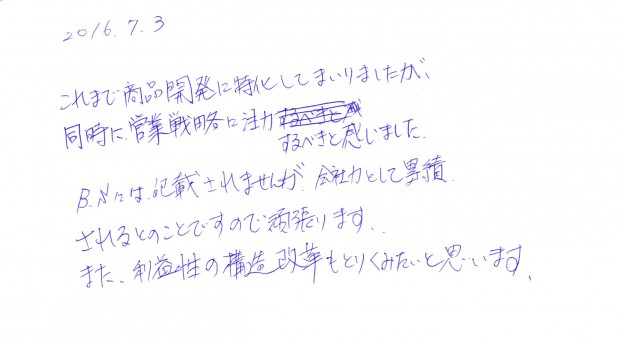 2016.7.3
これまで商品開発に特化してまいりましたが、
同時に、営業戦略に注力
するべきと感じました.
B.Sには、記載されませんが、会社力として累積.
されるとのことですので頑張ります..
また、利益性の構造改革もとりくみたいと思います.